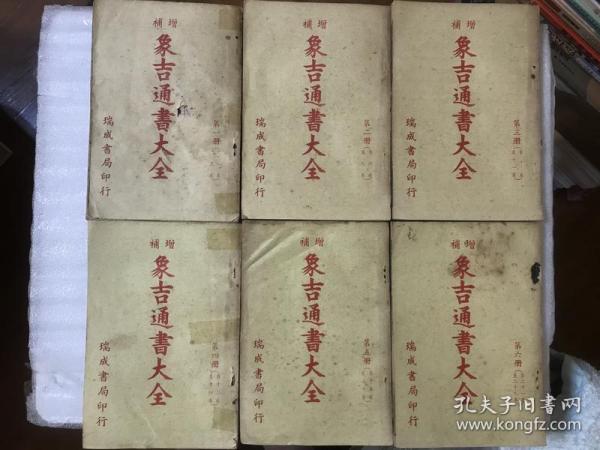 增補
象吉通書大全
第一冊
瑞成書局印行
增補
象吉通書大全
第二冊
瑞成書局印行
增補
象吉通書大全
第三冊
瑞成書局印行
增補
象吉通書大全
第四冊
瑞成書局印行
增補
象吉通書大全
第五冊
瑞成書局印行
增補
象吉通書大全
第六冊
瑞成書局印行
孔夫子旧书网
www.kongfz.com